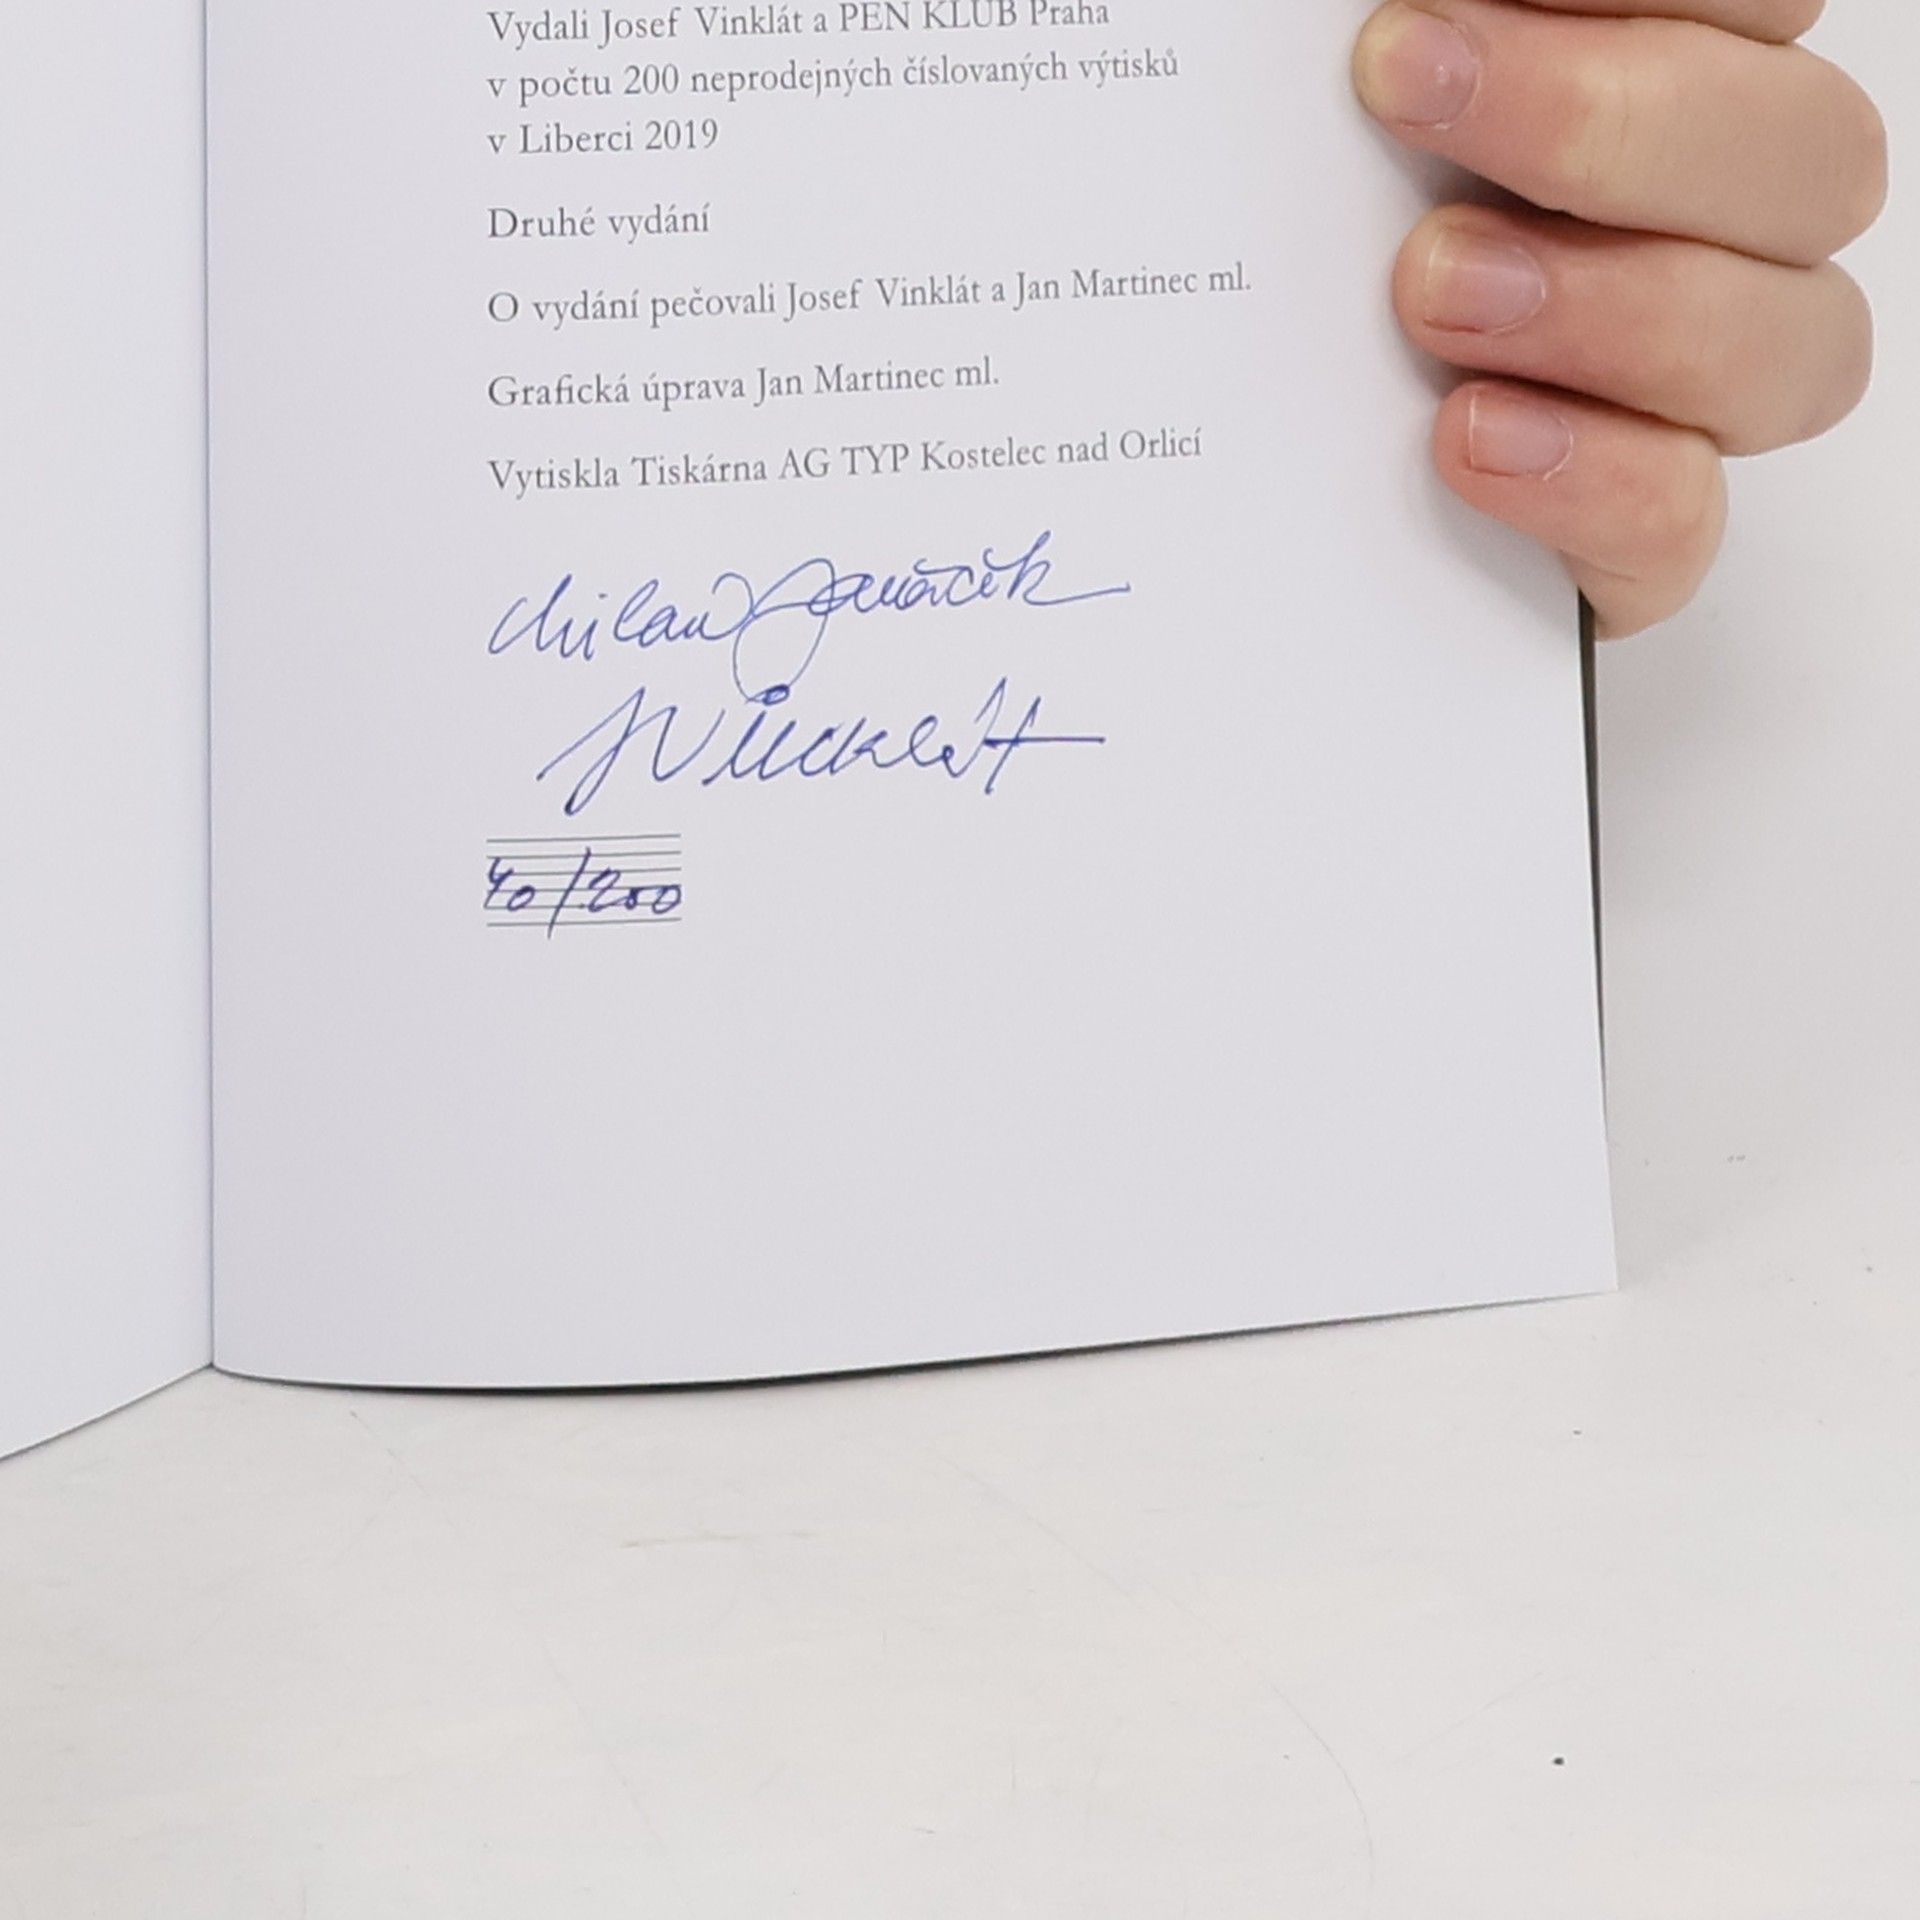 Vydali Josef Vinklát a PEN KLUB Praha
v počtu 200 neprodejných číslovaných výtisků
v Liberci 2019
Druhé vydání
O vydání pečovali Josef Vinklát a Jan Martinec ml.
Grafická úprava Jan Martinec ml.
Vytiskla Tiskárna AG TYP Kostelec nad Orlicí
Milan Janáček
J Vinklát
40/200